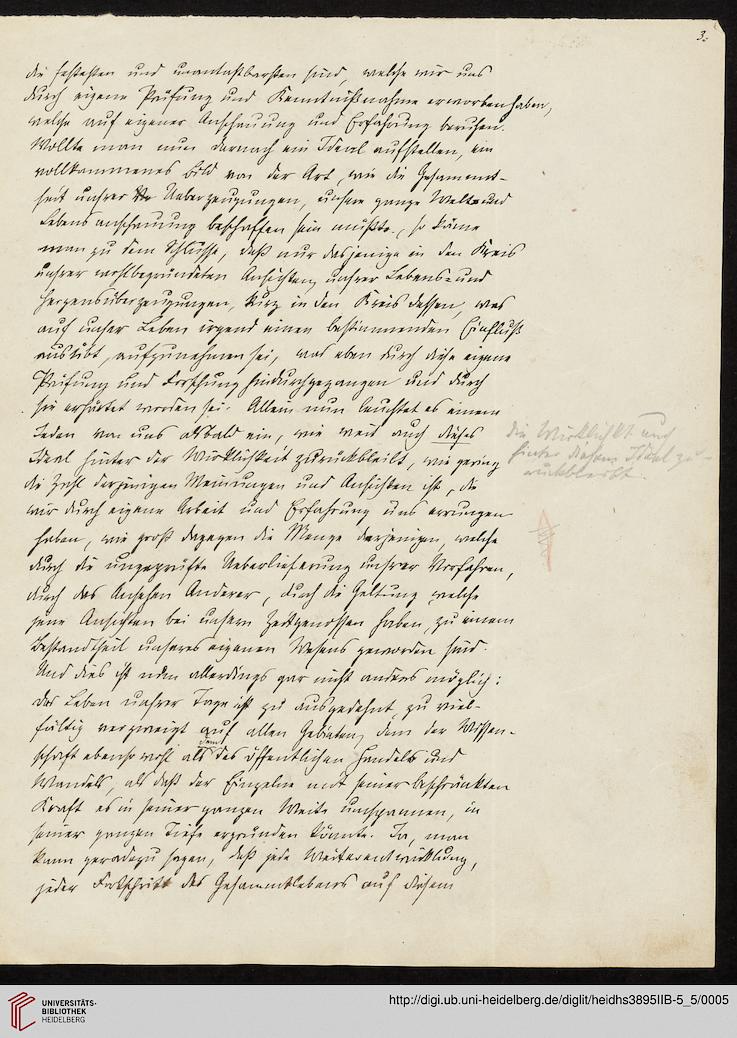 3.
die festesten und unantastbarsten sind, welche wir uns
durch eigene Prüfung und Kenntnißnahme erworben haben,
welche auf eigener Anschauung und Erfahrung beruhen.
Wollte man nun darnach ein Ideal aufstellen, ein
vollkommenes Bild von der Art, wie die Gesammt-
heit unsrer Ueberzeugungen, unsre ganze Welt- und
Lebensanschauung beschaffen sein müßte, so käme
man zu dem Schlusse, daß nur dasjenige in den Kreis
unsrer wohlbegründeten Ansichten, unsrer Lebens- und
Herzensüberzeugungen, kurz in den Kreis dessen, was
auf unser Leben irgend einen bestimmenden Einfluß
ausübt, aufzunehmen sei, was eben durch diese eigene
Prüfung und Forschung hindurchgegangen und durch
sie erhärtet worden sei. Allein nun leuchtet es einem
Jeden von uns alsbald ein, wie weit auch dieses
Ideal hinter der Wirklichkeit zurückbleibt, wie gering
die Zahl derjenigen Meinungen und Ansichten ist, die
wir durch eigene Arbeit und Erfahrung uns errungen
haben, wie groß dagegen die Menge derjenigen, welche
durch die ungeprüfte Ueberlieferung unsrer Vorfahren,
durch das Ansehen Anderer, durch die Geltung welche
jene Ansichten bei unsern Zeitgenossen haben, zu einem
Bestandtheil unseres eigenen Wesens geworden sind.
Und dies ist nun allerdings gar nicht anders möglich:
das Leben unsrer Tage ist zu ausgedehnt, zu viel-
fältig verzweigt auf allen Gebieten, dem der Wissen-
schaft ebenso wohl als dem des öffentlichen Handels und
Wandels, als daß der Einzelne mit seiner beschränkten
Kraft es in seiner ganzen Weite umspannen, in
seiner ganzen Tiefe ergründen könnte. Ja, man
kann geradezu sagen, daß jede Weiterentwicklung,
jeder Fortschritt des Gesammtlebens auf diesem
die Wirklichkt auch
hinter diesem Ideal zu-
rückbleibt.
UNIVERSITÄTS-
BIBLIOTHEK
HEIDELBERG
http://digi.ub.uni-heidelberg.de/diglit/heidhs3895IIB-5_5/0005